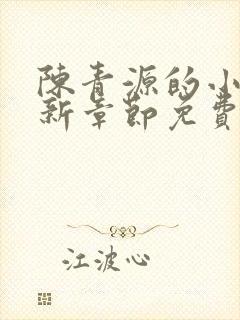 陳青源的小
新章節免費
江波心